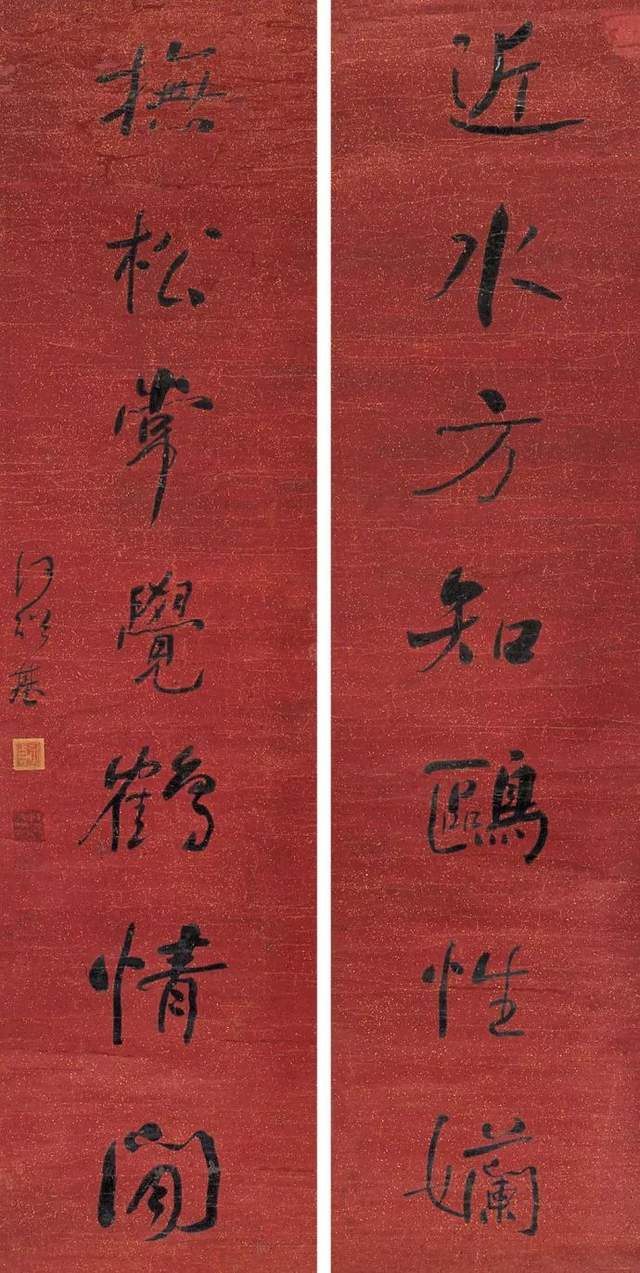 近水方知鷗性孏
撫松常覺鶴情閒
何紹基